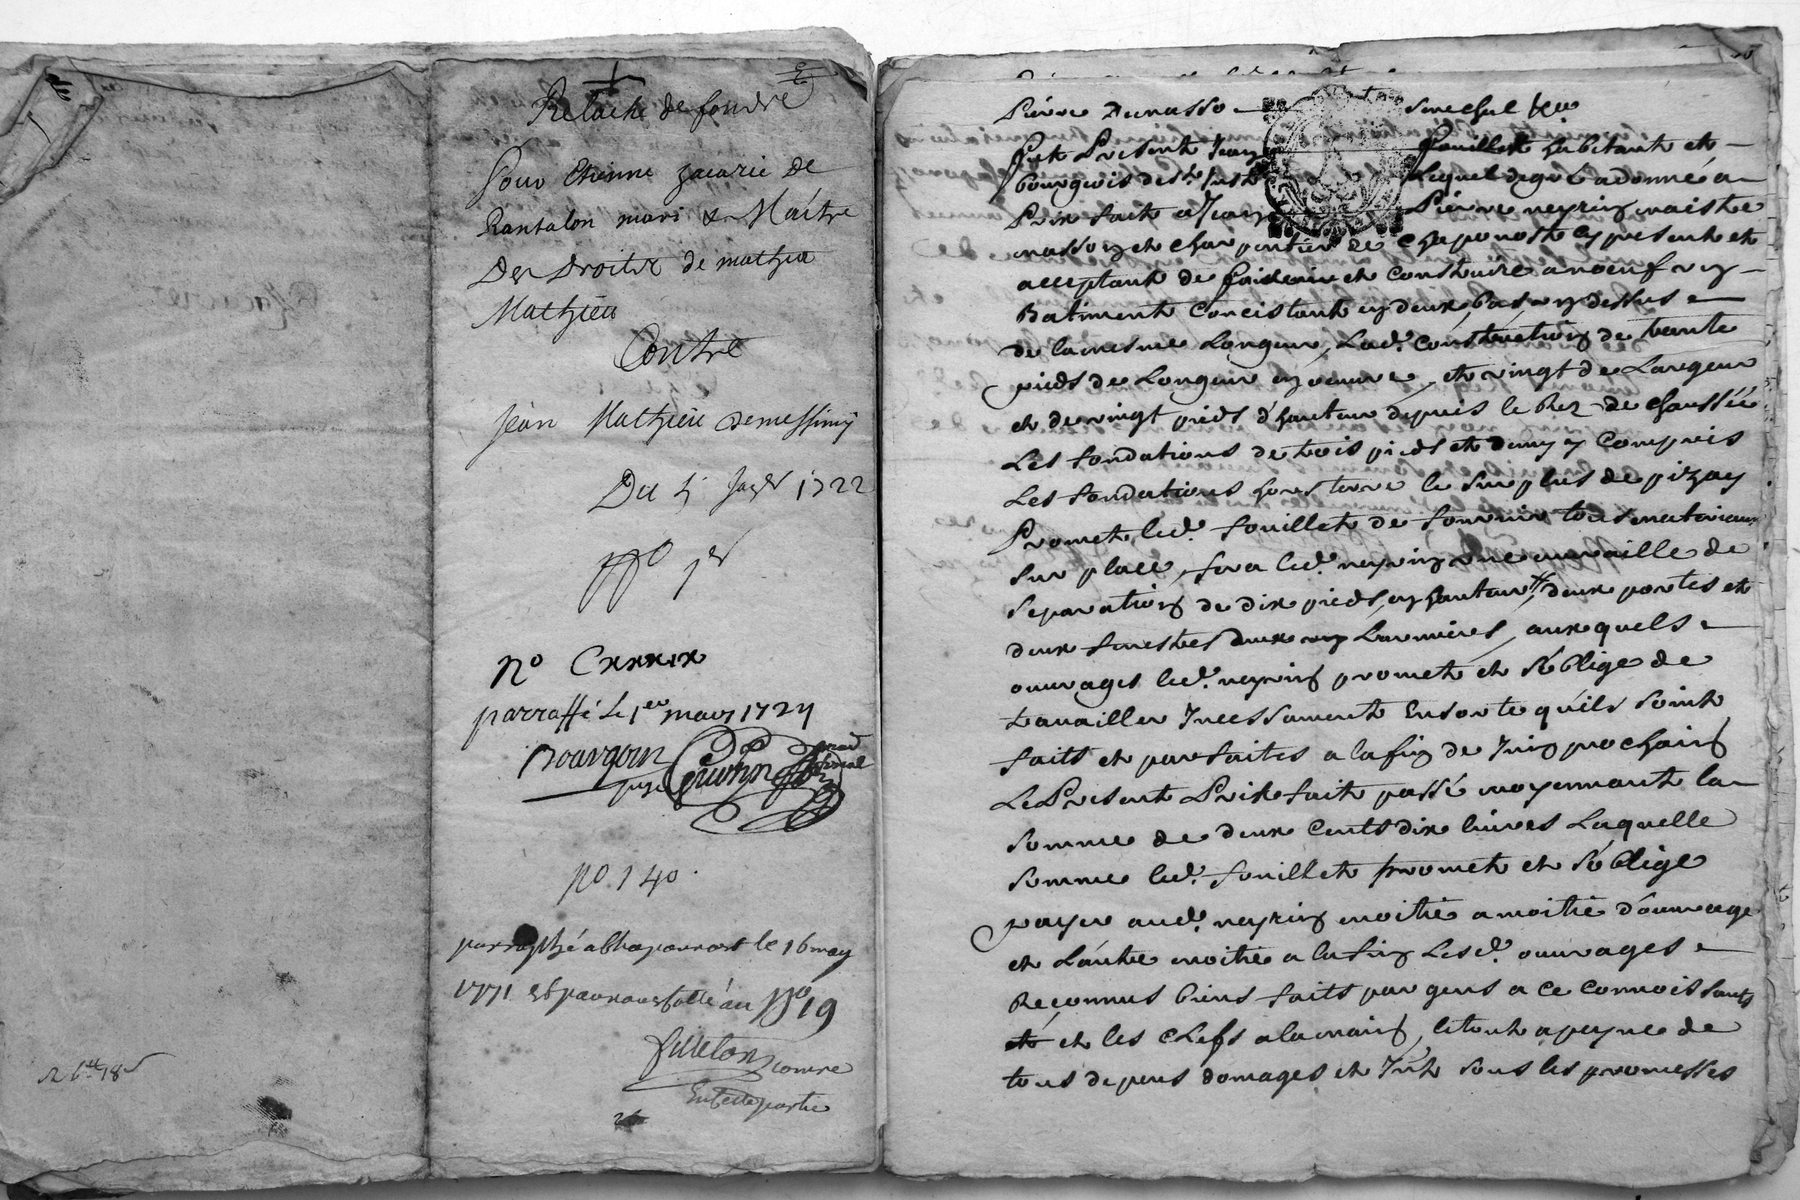 Relache de fondre
Pour Etienne zacarie de
Pantalon mari & Maitre
Des Droitz de mathia
Mathieu
Contre
Jean Mathieu demessimy
Du 5 Janer 1722
no
parraffé Le 1er mars 1724
Bourgoin
juge
No. 140.
parraphé a Chaponnost le 16 may
1771 et par nous cotté au No 19
comre
En cette partie
26tt 18s
Pierre Dumasso senechal
Fut Present Jean fouillet habitant et
bourgeois de St. Just Lequel de gré a donné a
Prix fait a Jean Pierre neyrin maistre
masson et charpentier de chaponoste cy present et
acceptant de faire et construire a noeuf un
Batiment Concistant en deux bas en dessus
de la mesme Longeur, Lad. construction de trante
pieds de Longeur en oeuvre, et vingt de Largeur
et de vingt pieds d'hauteur depuis le Rez de chaussée
Les fondations de trois pieds et demy y Compris
Les fondations hors terre le surplus de pizay
Promet led. fouillet de fournir tous materiaux
sur place, fera led. neyrin une muraille de
separation de dix pieds en hauteur, deux portes et
deux fenestres Larmieres, auxquels
ouvrages led. neyrin promet et s'oblige de
travailler Incessament Ensorte qu'ils soint
faits et parfaites a la fin de Juin prochain
Le Present Prix fait passé moyennant la
somme de deux cents dix livres Laquelle
somme led. fouillet promet et s'oblige
payer aud. neyrin moitié a moitié d'ouvrage
et L'autre moitié a la fin Lesd. ouvrages
Reconnus biens faits par gens a ce connoissants
et les clefs a la main, le tout a peyne de
tous depens domages et Intt. sous les promesses